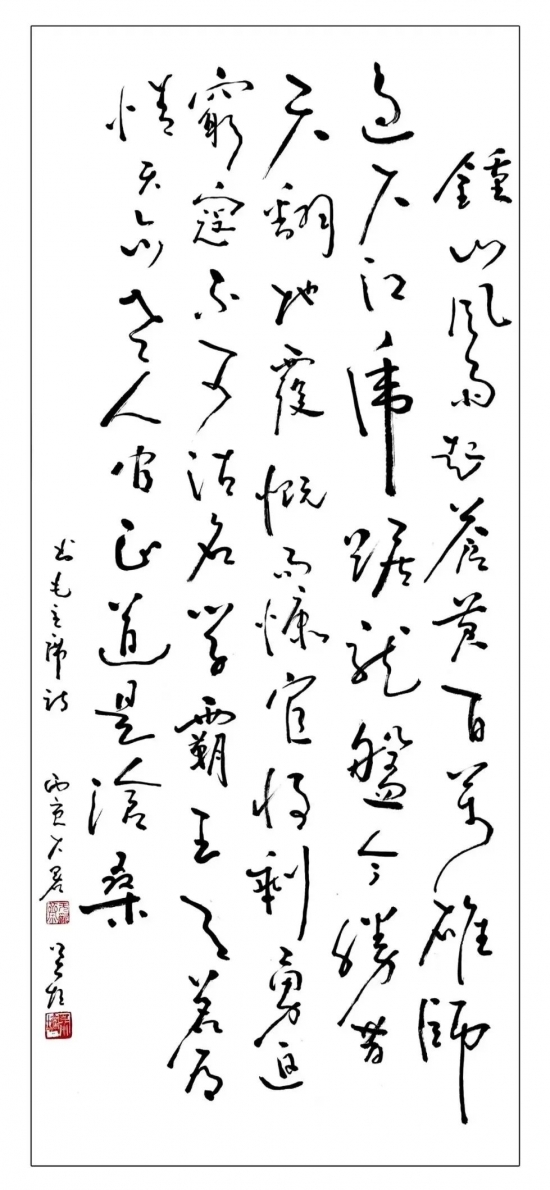 鍾山風雨起蒼黃百萬雄師
過大江虎踞龍盤今勝昔
天翻地覆慨而慷宜將剩勇追
窮寇不可沽名學霸王天若有
情天亦老人間正道是滄桑
书毛主席詩 丙寅大暑